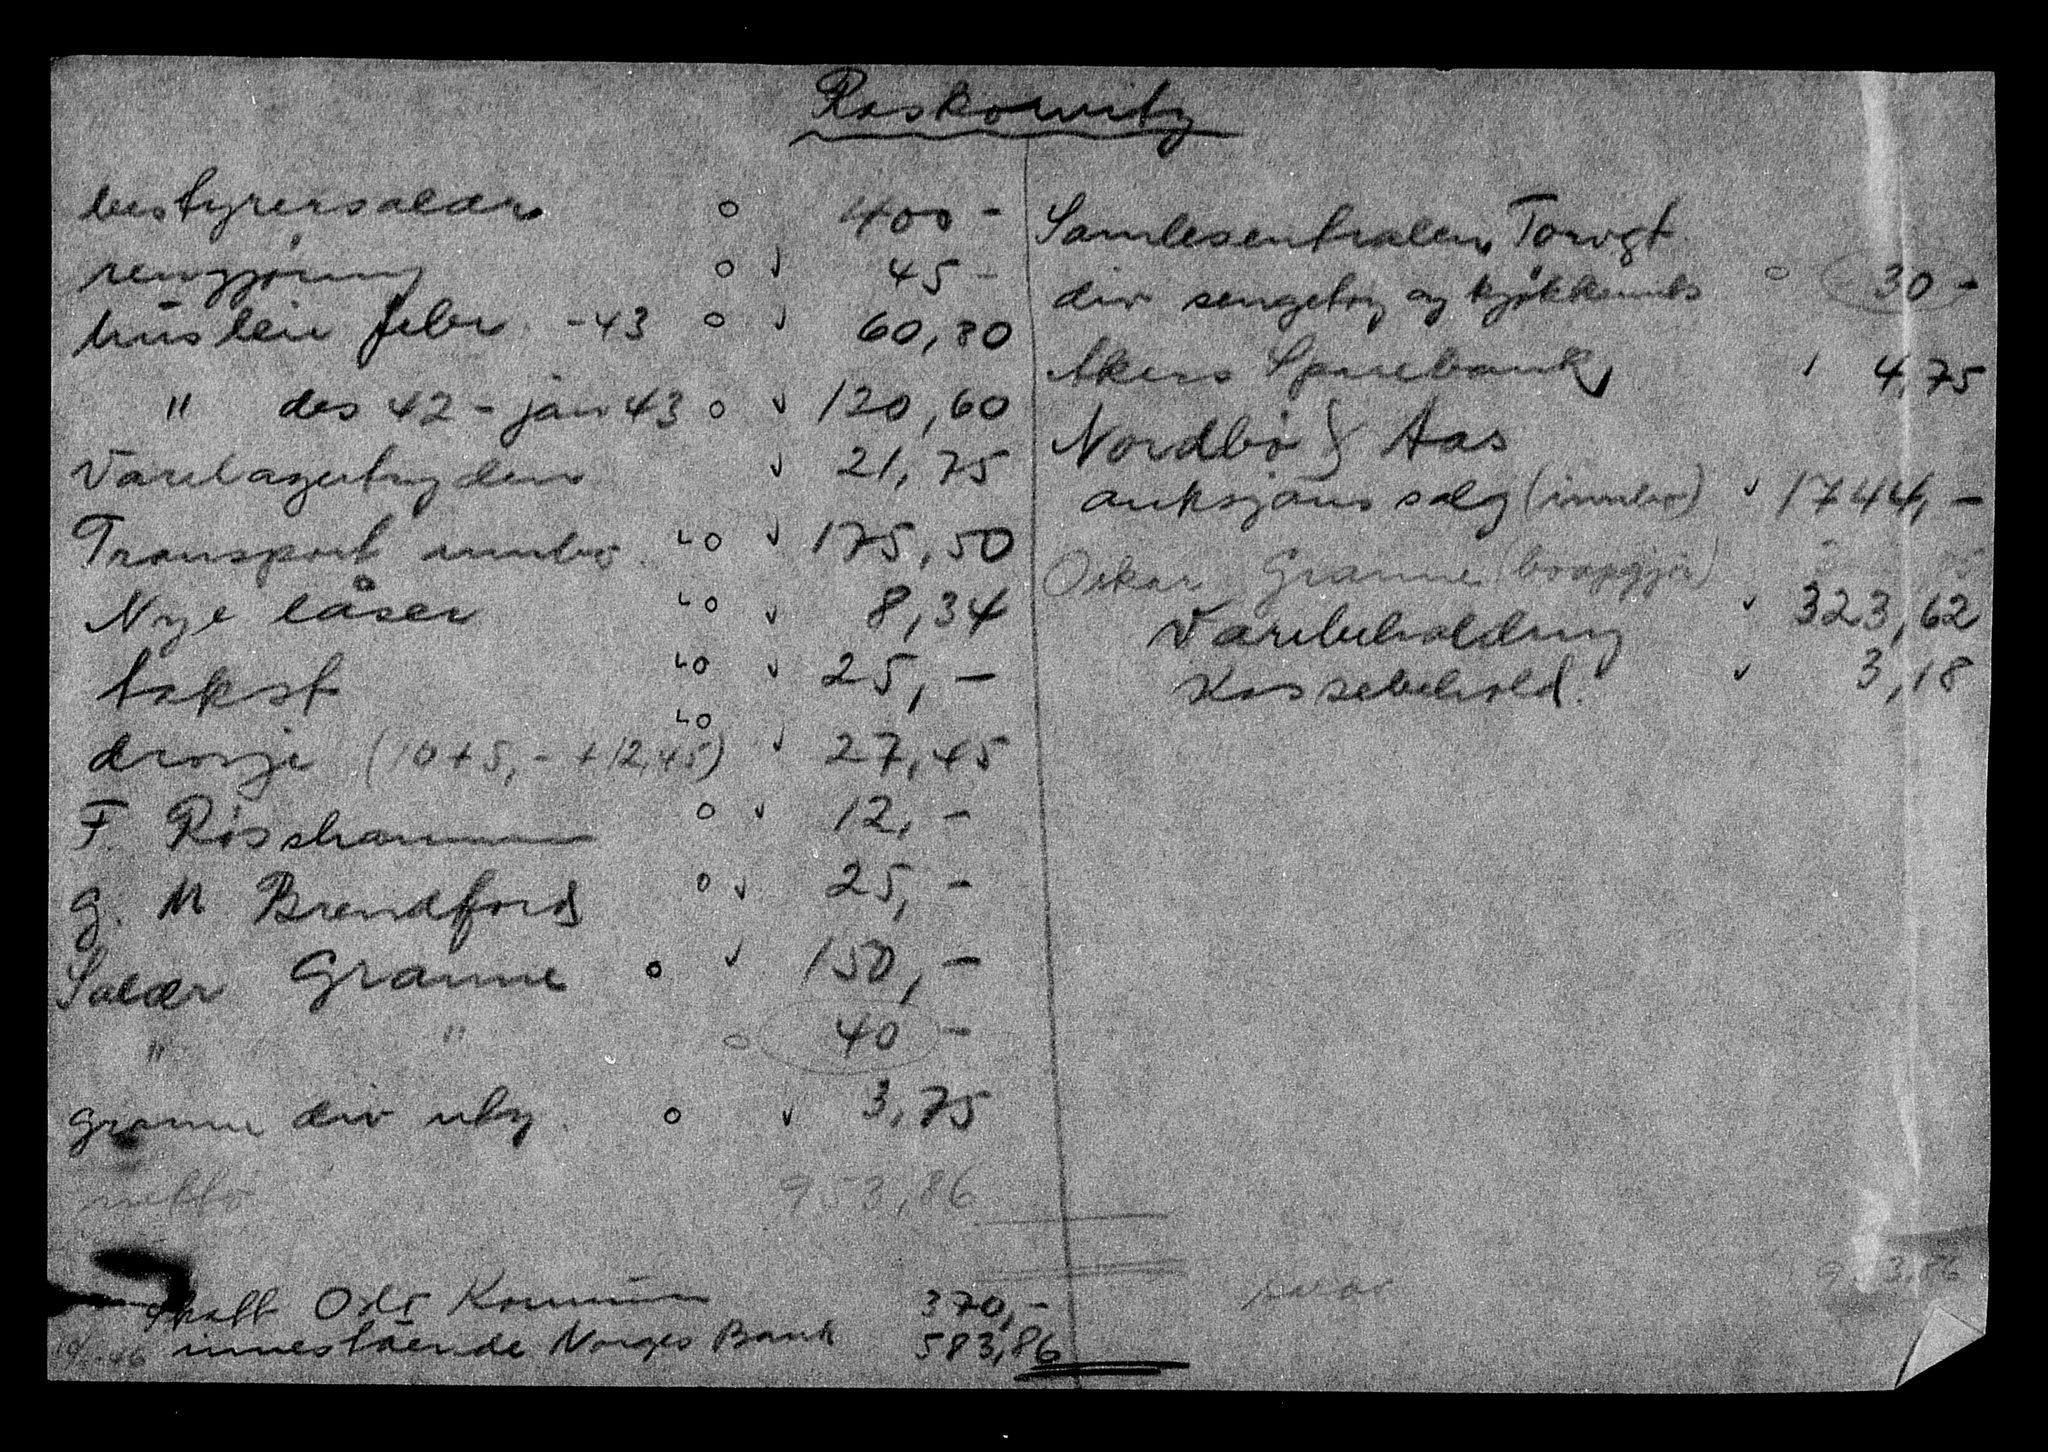 Raskowitz
bestyrersalær o 400 -
rengjøring o √ 45 -
husleie febr. -43 o √ 60,30
" des 42 - jan 43 o √ 120,60
Varelagertrygden √ 21,75
Transport innbo. "o √ 175,50
Nye låser "o √ 8,34
takst "o √ 25,-
drosje (10+5,- +12,45) "o √ 27,45
F. o √ 12,-
G. M Brendford o √ 25,-
Salær Granne o √ 150,-
" " o 40 -
Granne div utg. o √ 3,75
netto 953,86
skatt Oslo Kommune 370,-
innestående Norges Bank 583,86
Samlesentralen, Torvgt.
div sengetøy og kjøkkenuts o 30 -
Akers Sparebank √ 4,75
Nordbø & Aas
auksjonssalg (innbo) √ 1744,-
Oskar Granne (booppgjør)
Varebeholdning √ 323,62
Kassebehold. √ 3,18
953,86